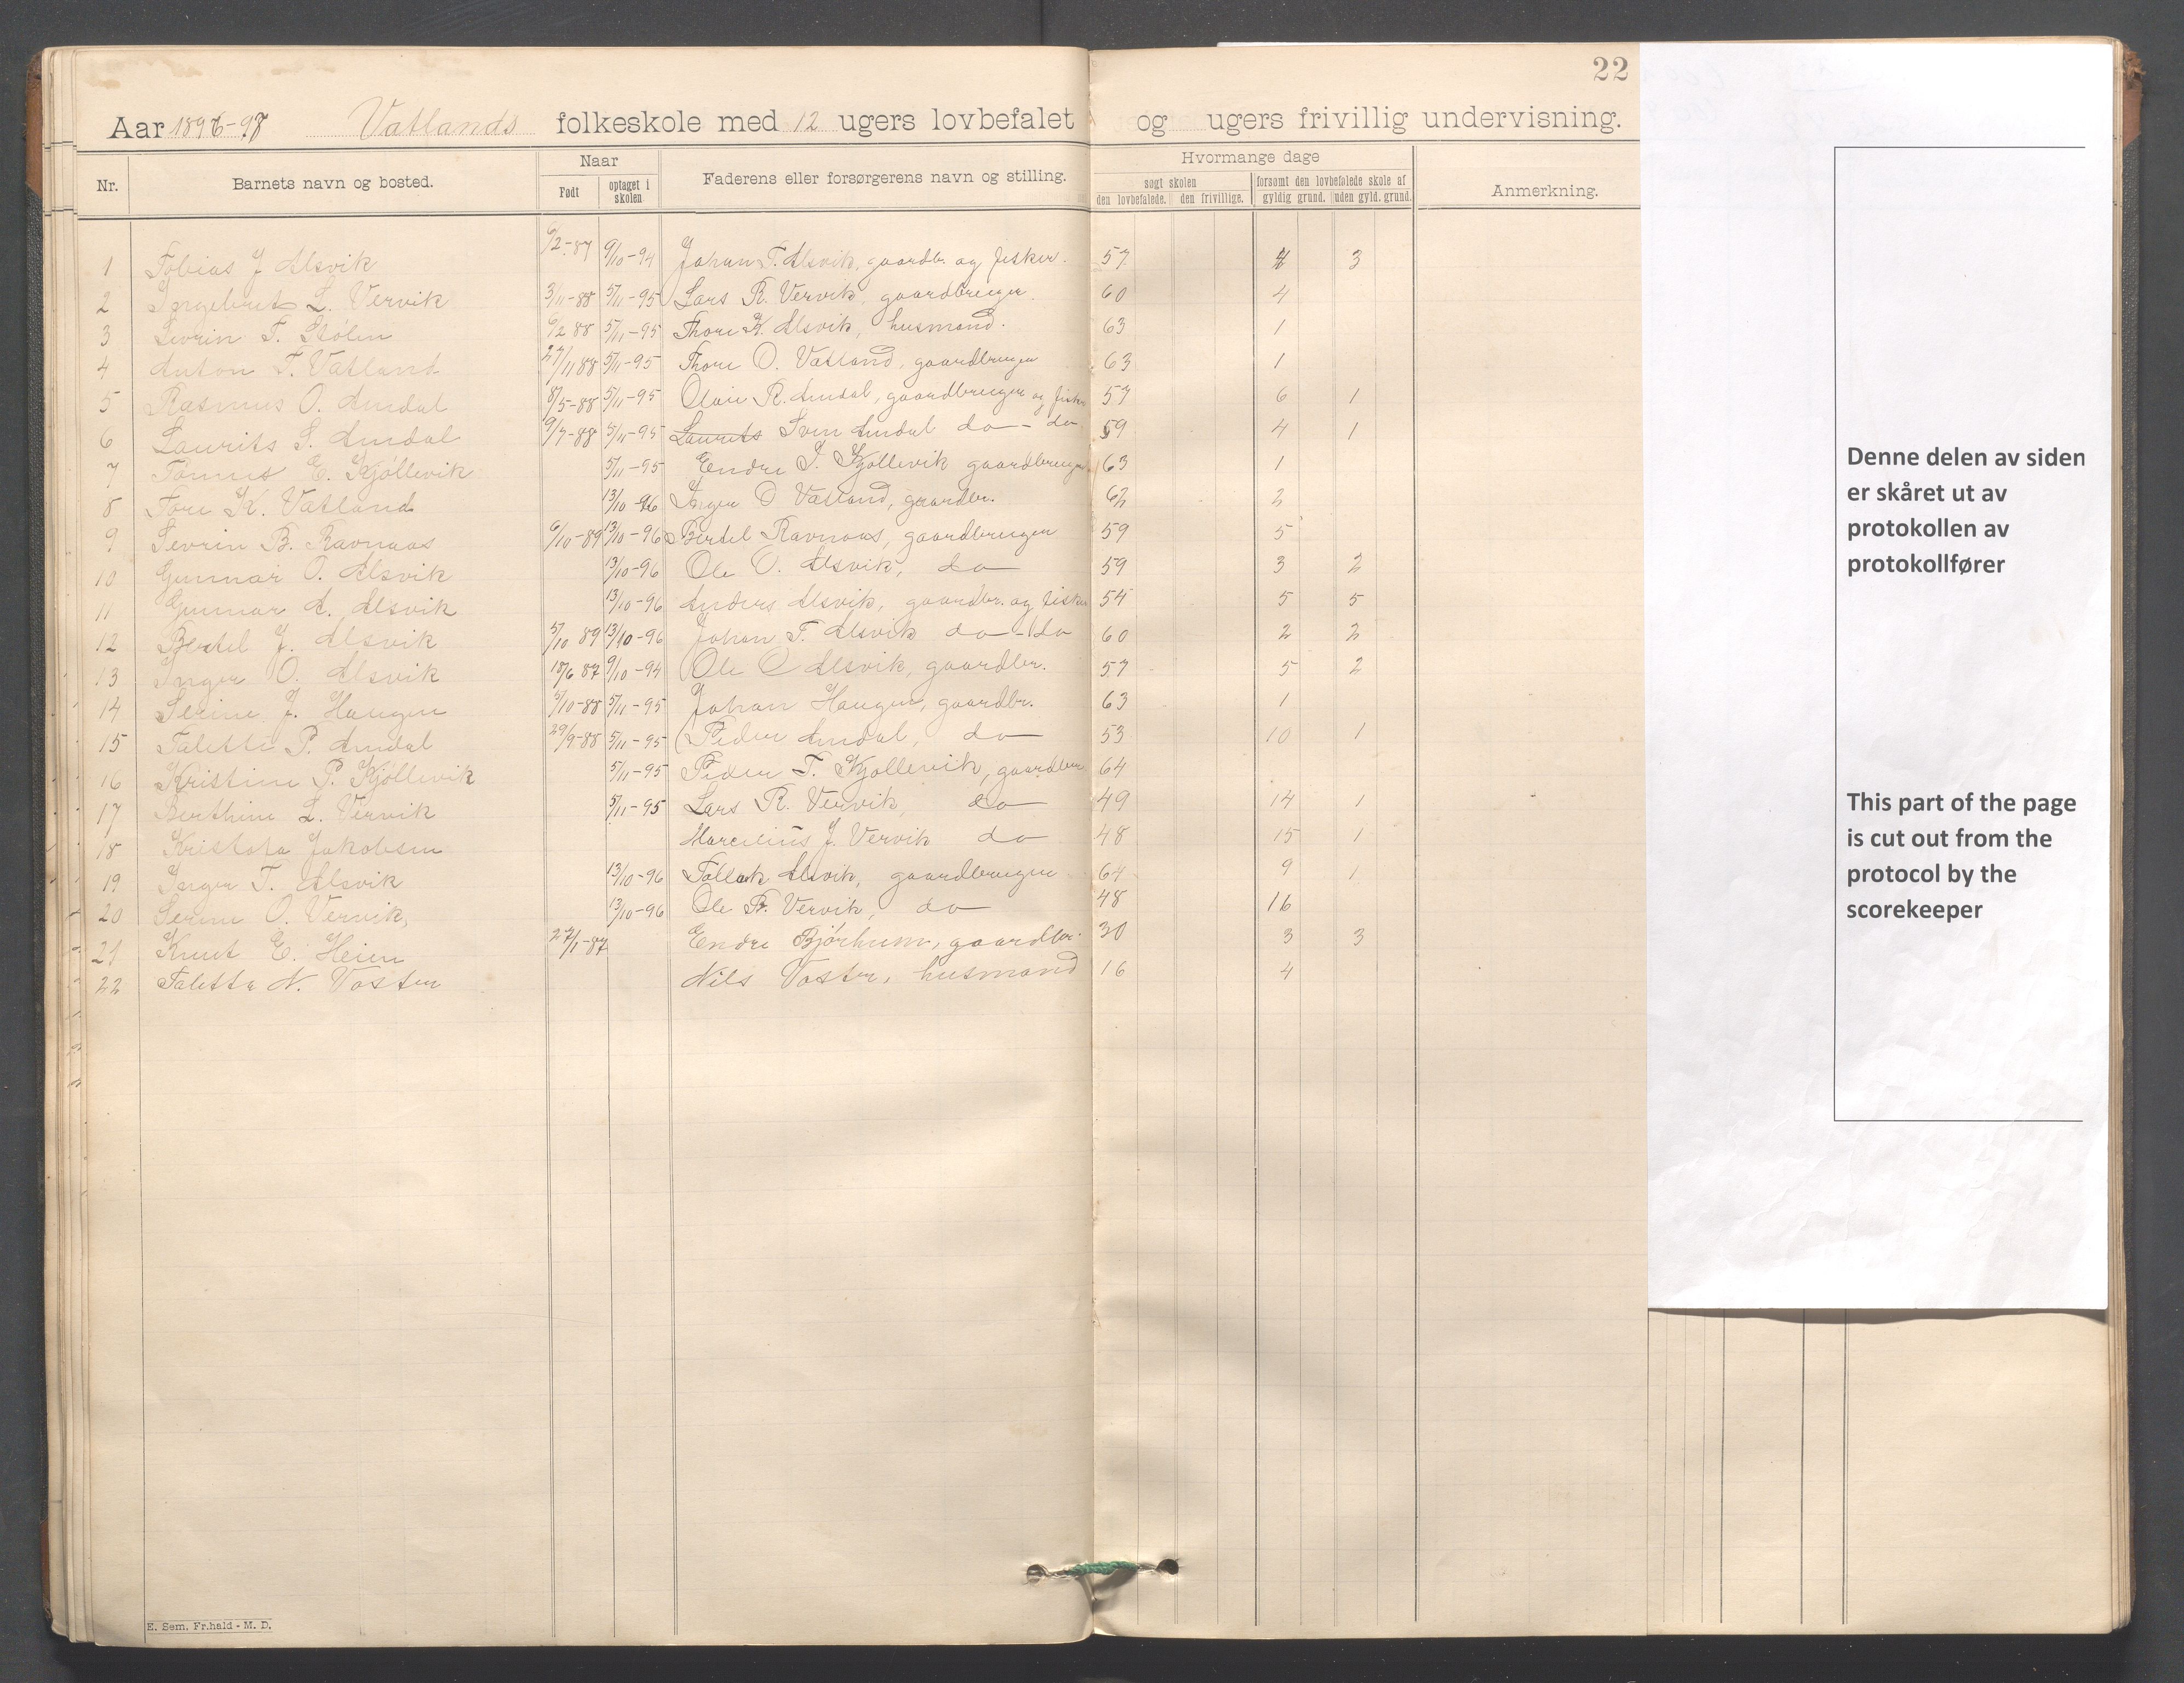 22
Aar 1896-97 Vatlands folkeskole med 12 ugers lovbefalet og ugers frivillig undervisning.
Nr. Barnets navn og bosted. Naar Faderens eller forsørgerens navn og stilling. Hvormange dage Anmerkning.
Født optaget i skolen søgt skolen forsømt den lovbefalede skole af
den lovbefalede. den frivillige. gyldig grund. uden gyld. grund.
1 Tobias J Alsvik 6/2-87 9/10-94 Johan T. Alsvik, gaardbr. og fisker. 57 4 3
2 Ingebret L. Vervik 3/11-88 5/11-95 Lars R. Vervik, gaardbruger 60 4
3 Sevrin T. Stølen 6/2 88 5/11-95 Thore K. Alsvik, husmand. 63 1
4 Anton T. Vatland 27/11 88 5/11-95 Thore O. Vatland, gaardbruger 63 1
5 Rasmus O. Amdal 8/5-88 5/11-95 R. Amdal, gaardbruger og fisker 57 6 1
6 Laurits S. Amdal 9/7-88 5/11-95 Laurits Sven Amdal do - do 59 4 1
7 E. Kjøllevik 5/11-95 Endre I. Kjøllevik gaardbruger 63 1
8 Tore K. Vatland 13/10-96 Inger O Vatland, gaardbr. 62 2
9 Sevrin B. Ravnaas 6/10-89 13/10-96 Bertel Ravnaas, gaardbruger 59 5
10 Gunnar O. Alsvik 13/10-96 Ole O. Alsvik, do 59 3 2
11 Gunnar A. Alsvik 13/10-96 Anders Alsvik, gaardbr. og fisker 54 5 5
12 Bertel J. Alsvik 5/10 89 13/10-96 Johan T. Alsvik do - do 60 2 2
13 Inger O. Alsvik 18/6 87 9/10-94 Ole O Alsvik, gaardbr. 57 5 2
14 Serine J. Haugen 5/10-88 5/11-95 Johan Haugen, gaardbr. 63 1
15 Talette P. Amdal 29/9-88 5/11-95 Peder Amdal, do 53 10 1
16 Kristine P. Kjøllevik 5/11-95 Peder T. Kjøllevik, gaardbr 64
17 Berthine L. Vervik 5/11-95 Lars R. Vervik, do 49 14 1
18 Jakobsen Marcelius J. Vervik do 48 15 1
19 Inger T. Alsvik 13/10-96 Tollak Alsvik, gaardbruger 64 9 1
20 Serine O. Vervik, 13/10-96 Ole R. Vervik, do 48 16
21 Knut E. Heien 27/1-87 Endre Bjørhum, gaardbr. 30 3 3
22 Taletta N. Vosten Nils Vosten, husmand 16 4
E. Sem. Fr.hald - M. D.
Denne delen av siden
er skåret ut av
protokollen av
protokollfører
This part of the page
is cut out from the
protocol by the
scorekeeper